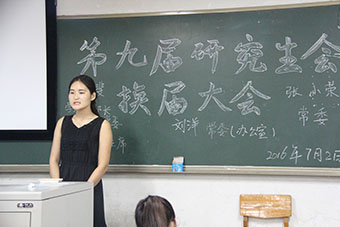 第九届研究生会
换届大会
张小荣
常委
刘洋 常委(办公室)
2016年7月2日